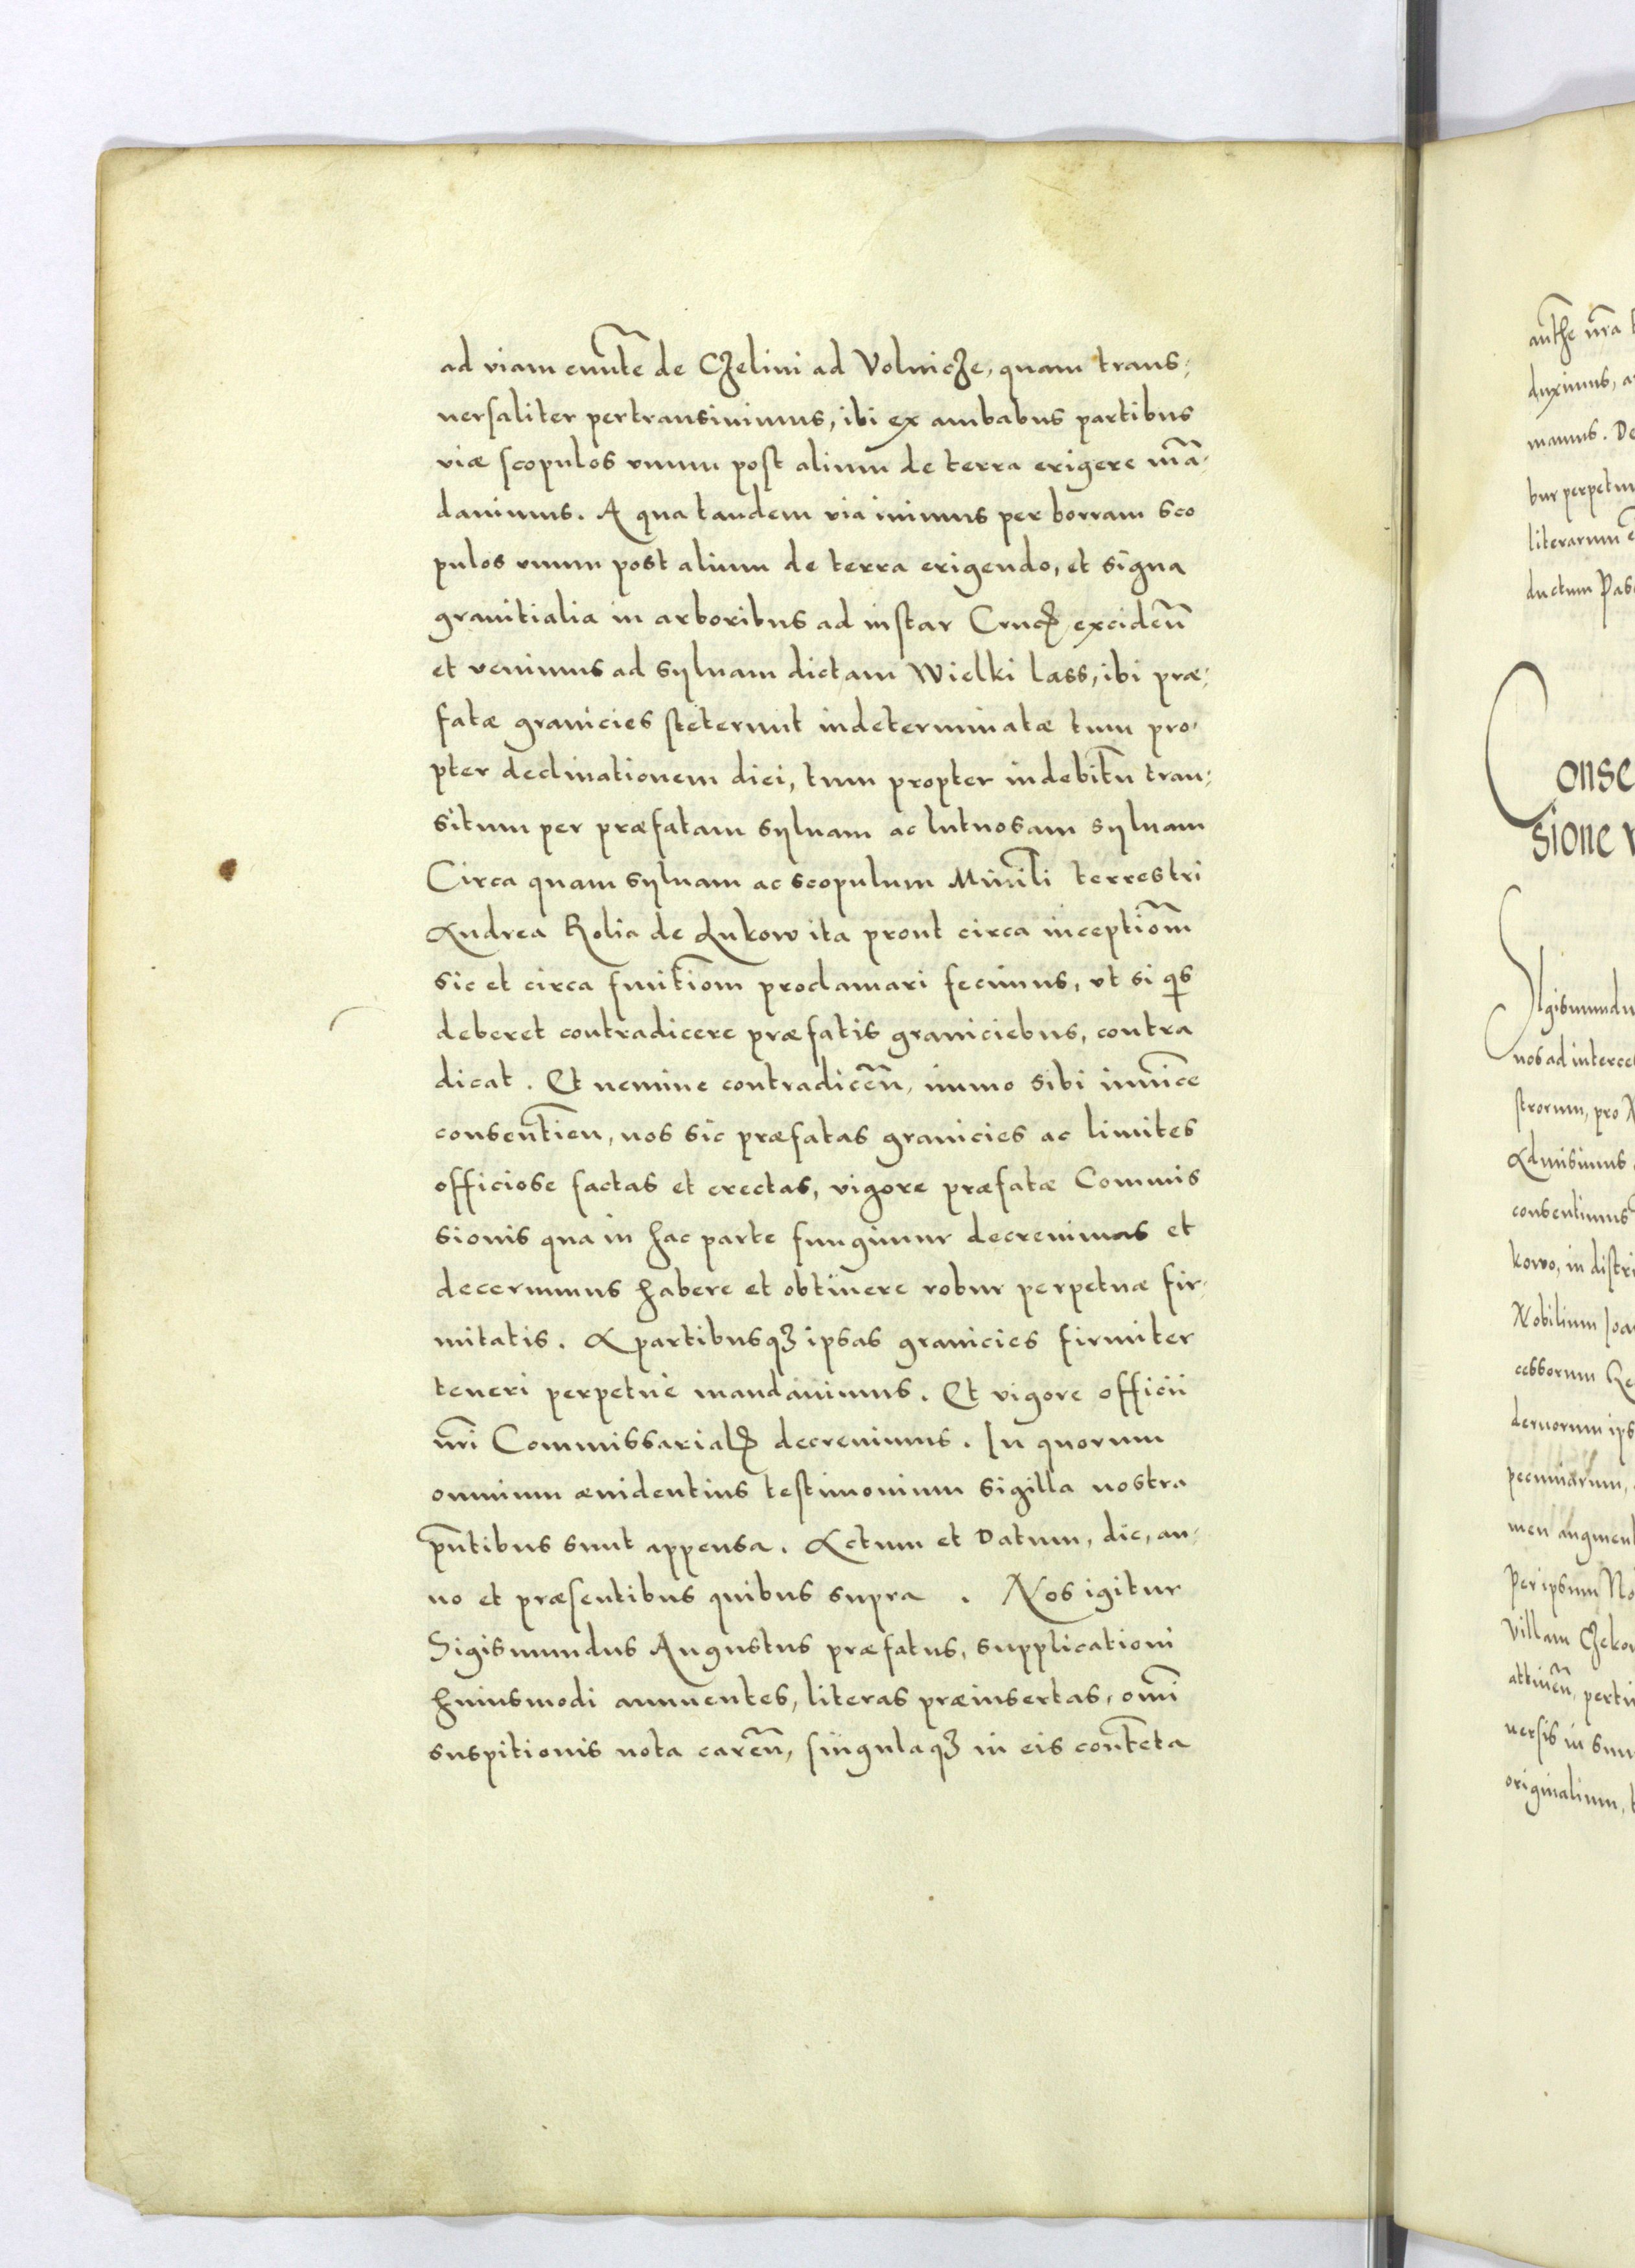 ad viam euñte de Czelini ad Volnicze, quam trans,
uersaliter pertransiuimus, ibi ex ambabus partibus
viæ scopulos vnum post alium de terra erigere mã,
dauimus. A qua tandem via iuimus per borram sco
pulos vnum post alium de terra erigendo, et signa
granitialia in arboribus ad instar Cruc excideñ
et venimus ad syluam dictam Wielki lass, ibi præ,
fatæ granicies steterunt indeterminatæ tum pro,
pter declinationem diei, tum propter indebitũ tran,
situm per præfatam syluam ac lutuosam syluam
Circa quam syluam ac scopulum terrestri
Andrea Rolia de Lukow ita prout circa inceptiom̃
sic et circa finitiom̃ proclamari fecimus, vt si qs
deberet contradicere præfatis graniciebus, contra
dicat. Et nemine contradiceñ, immo sibi inuice
consentieñ, nos sic præfatas granicies ac limites
officiose factas et erectas, vigore præfatæ Commis
sionis qua in hac parte fungimur decreuimus et
decernimus habere et obtinere robur perpetuæ fir,
mitatis. A partibusqꝫ ipsas granicies firmiter
teneri perpetue mandauimus. Et vigore officii
nr̃i Commissarial decreuimus. In quorum
omnium æuidentius testimonium sigilla nostra
pñtibus sunt appensa. Actum et Datum, die, an,
no et præsentibus quibus supra. Nos igitur
Sigismundus Augustus præfatus, supplicationi
huiusmodi annuentes, literas præinsertas, omĩ
suspitionis nota careñ, singulaqꝫ in eis conteta
anthe nr̃a
duximus, a
mamus. De
bur perpetu
literarum
ductum Pas
Conse
sione
Sigismundu
nos ad interce
strorum, pro
Admisimus
consentimus
kowo, in distri
Nobilium Joa
cessorum Re
deruorum ips
pecuniarum,
men augment
Per ipsum No
Villam Czeko
attineñ, perti
uersis in sui
originalium,